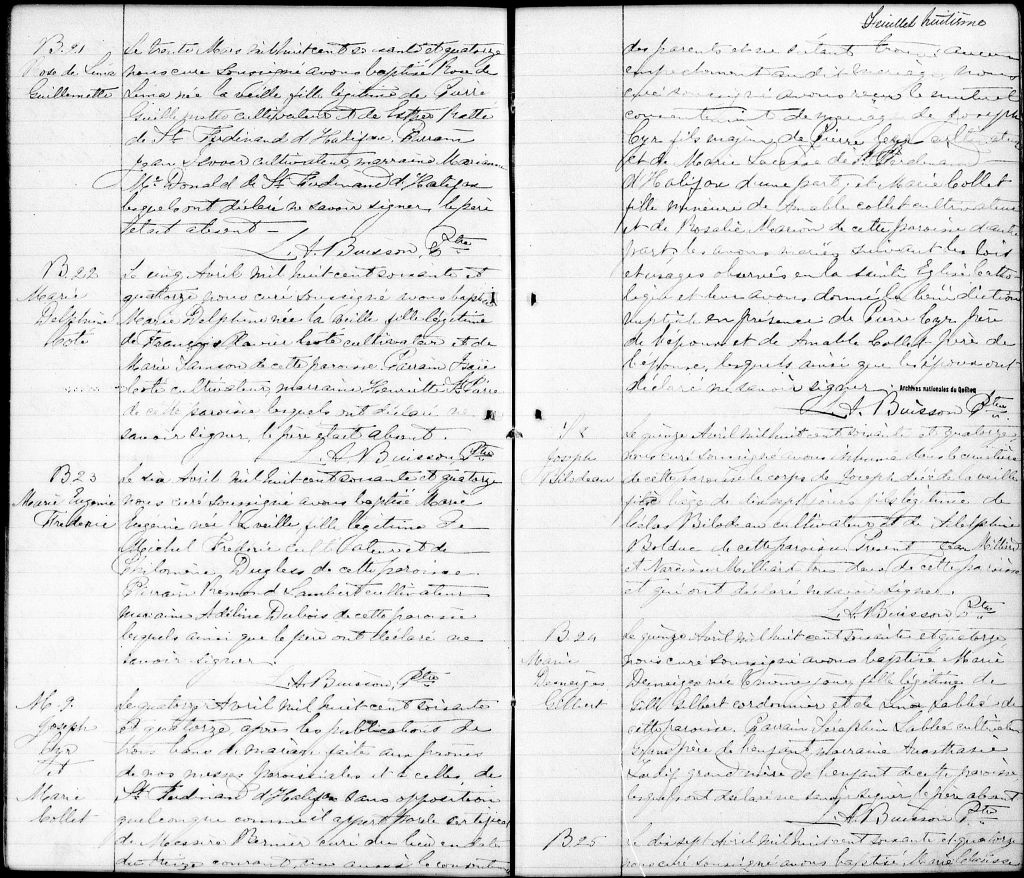 B. 21
Rose de Lima
Guillemette
Le trente Mars mil huit cent soixante et quatorze
nous curé soussigné avons baptisé Rose de
Lima née la veille fille légitime de Pierre
Guillemette cultivateur et de Esther
de St Ferdinand d'Halifax. Parrain
Jean cultivateur, marraine
Mc Donald de St Ferdinand d'Halifax
lesquels ont déclaré ne savoir signer, le père
était absent —
L. A. Buisson, Ptre
B. 22
Marie
Delphine
Coté
Le cinq Avril mil huit cent soixante et
quatorze nous curé soussigné avons baptisé
Marie Delphine née la veille fille légitime
de François Xavier Coté cultivateur et de
Marie Samson de cette paroisse. Parrain
Coté cultivateur, marraine Henriette St Pierre
de cette paroisse lesquels ont déclaré ne
savoir signer, le père était absent.
L. A. Buisson Ptre
B 23
Marie Eugenie
Frederic
Le six Avril mil huit cent soixante et quatorze
nous curé soussigné avons baptisé Marie
Eugenie née la veille fille légitime de
Michel Frederic cultivateur et de
Dugless de cette paroisse.
Parrain Lambert cultivateur
marraine Adeline Dubois de cette paroisse
lesquels ainsi que le père ont déclaré ne
savoir signer.
L. A. Buisson, Ptre
M. 9.
Joseph
Cyr
et
Marie
Collet
Le quatorze Avril mil huit cent soixante
et quatorze, après les publications de
trois bans de mariage faite aux prônes
de nos messes paroissiales et à celles de
St Ferdinand d'Halifax sans opposition
quelconque comme il appert par le certificat
de Messire Bernier curé du lieu en date
du treize courant, vu aussi le consentement
Feuillet huitième
des parents et ne s'étant trouvé aucun
empêchement au dit mariage, nous
curé soussigné avons reçu le mutuel
consentement de mariage de Joseph
Cyr fils majeur de Pierre Cyr cultivateur
et de Marie Lacasse de St Ferdinand
d'Halifax d'une part, et Marie Collet
fille mineure de Amable Collet cultivateur
et de Rosalie Marion de cette paroisse d'autre
part, les avons mariés suivant les lois
et usages observés en la sainte Eglise catho-
lique et leur avons donné la bénédiction
nuptiale en présence de Pierre Cyr père
de l'époux et de Amable Collet père de
l'épouse, lesquels ainsi que les époux ont
déclaré ne savoir signer.
Archives nationales du Québec
L. A. Buisson Ptre
Joseph
Bilodeau
Le quinze Avril mil huit cent soixante et quatorze
nous curé soussigné avons inhumé dans le cimetière
de cette paroisse le corps de Joseph décédé la veille
fils légitime de
Bilodeau cultivateur et de Delphine
Bolduc de cette paroisse. Présent Jean Milliard
et Narcisse Milliard tous deux de cette paroisse
et qui ont déclaré ne savoir signer.
L. A. Buisson Ptre
B 24
Marie
Demerges
Gilbert
Le quinze Avril mil huit cent soixante et quatorze
nous curé soussigné avons baptisé Marie
née fille légitime de
Gilbert cordonnier et de Labbé de
cette paroisse. Parrain Séraphin Labbé cultivateur
grand père de l'enfant, marraine Anasthasie
grand mère de l'enfant de cette paroisse
lesquels ont déclaré ne savoir signer, le père absent
L. A. Buisson Ptre
B 25
Le dix sept Avril mil huit cent soixante et quatorze
nous curé soussigné avons baptisé Marie